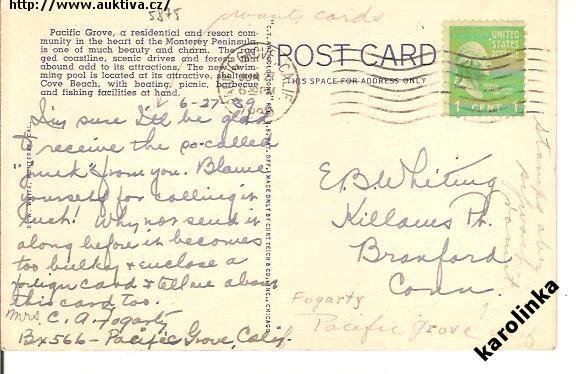 www.auktiva.cz/
5875
wants cards
Pacific Grove, a residential and resort com-
munity in the heart of the Monterey Peninsula
is one of much beauty and charm. The rug-
ged coastline, scenic drives and forests
abound add to its attractions. The new swim-
ming pool is located at its attractive, sheltered
Cove Beach, with boating, picnic, barbecue
and fishing facilities at hand.
POST CARD
THIS SPACE FOR ADDRESS ONLY
UNITED STATES POSTAGE
1 CENT 1
6-27-39
I'm sure I'll be glad
to receive the so-called
"junk" from you. Blame
yourself for calling it
such! Why not send it
along before it becomes
too bulky & enclose a
foreign card & tell me about
this card too.
Mrs. C. A. Fogarty
Bx 566 - Pacific Grove, Calif.
E. B. Whiting
Killams Pt.
Branford
Conn.
Fogarty
Pacific Grove
karolinka